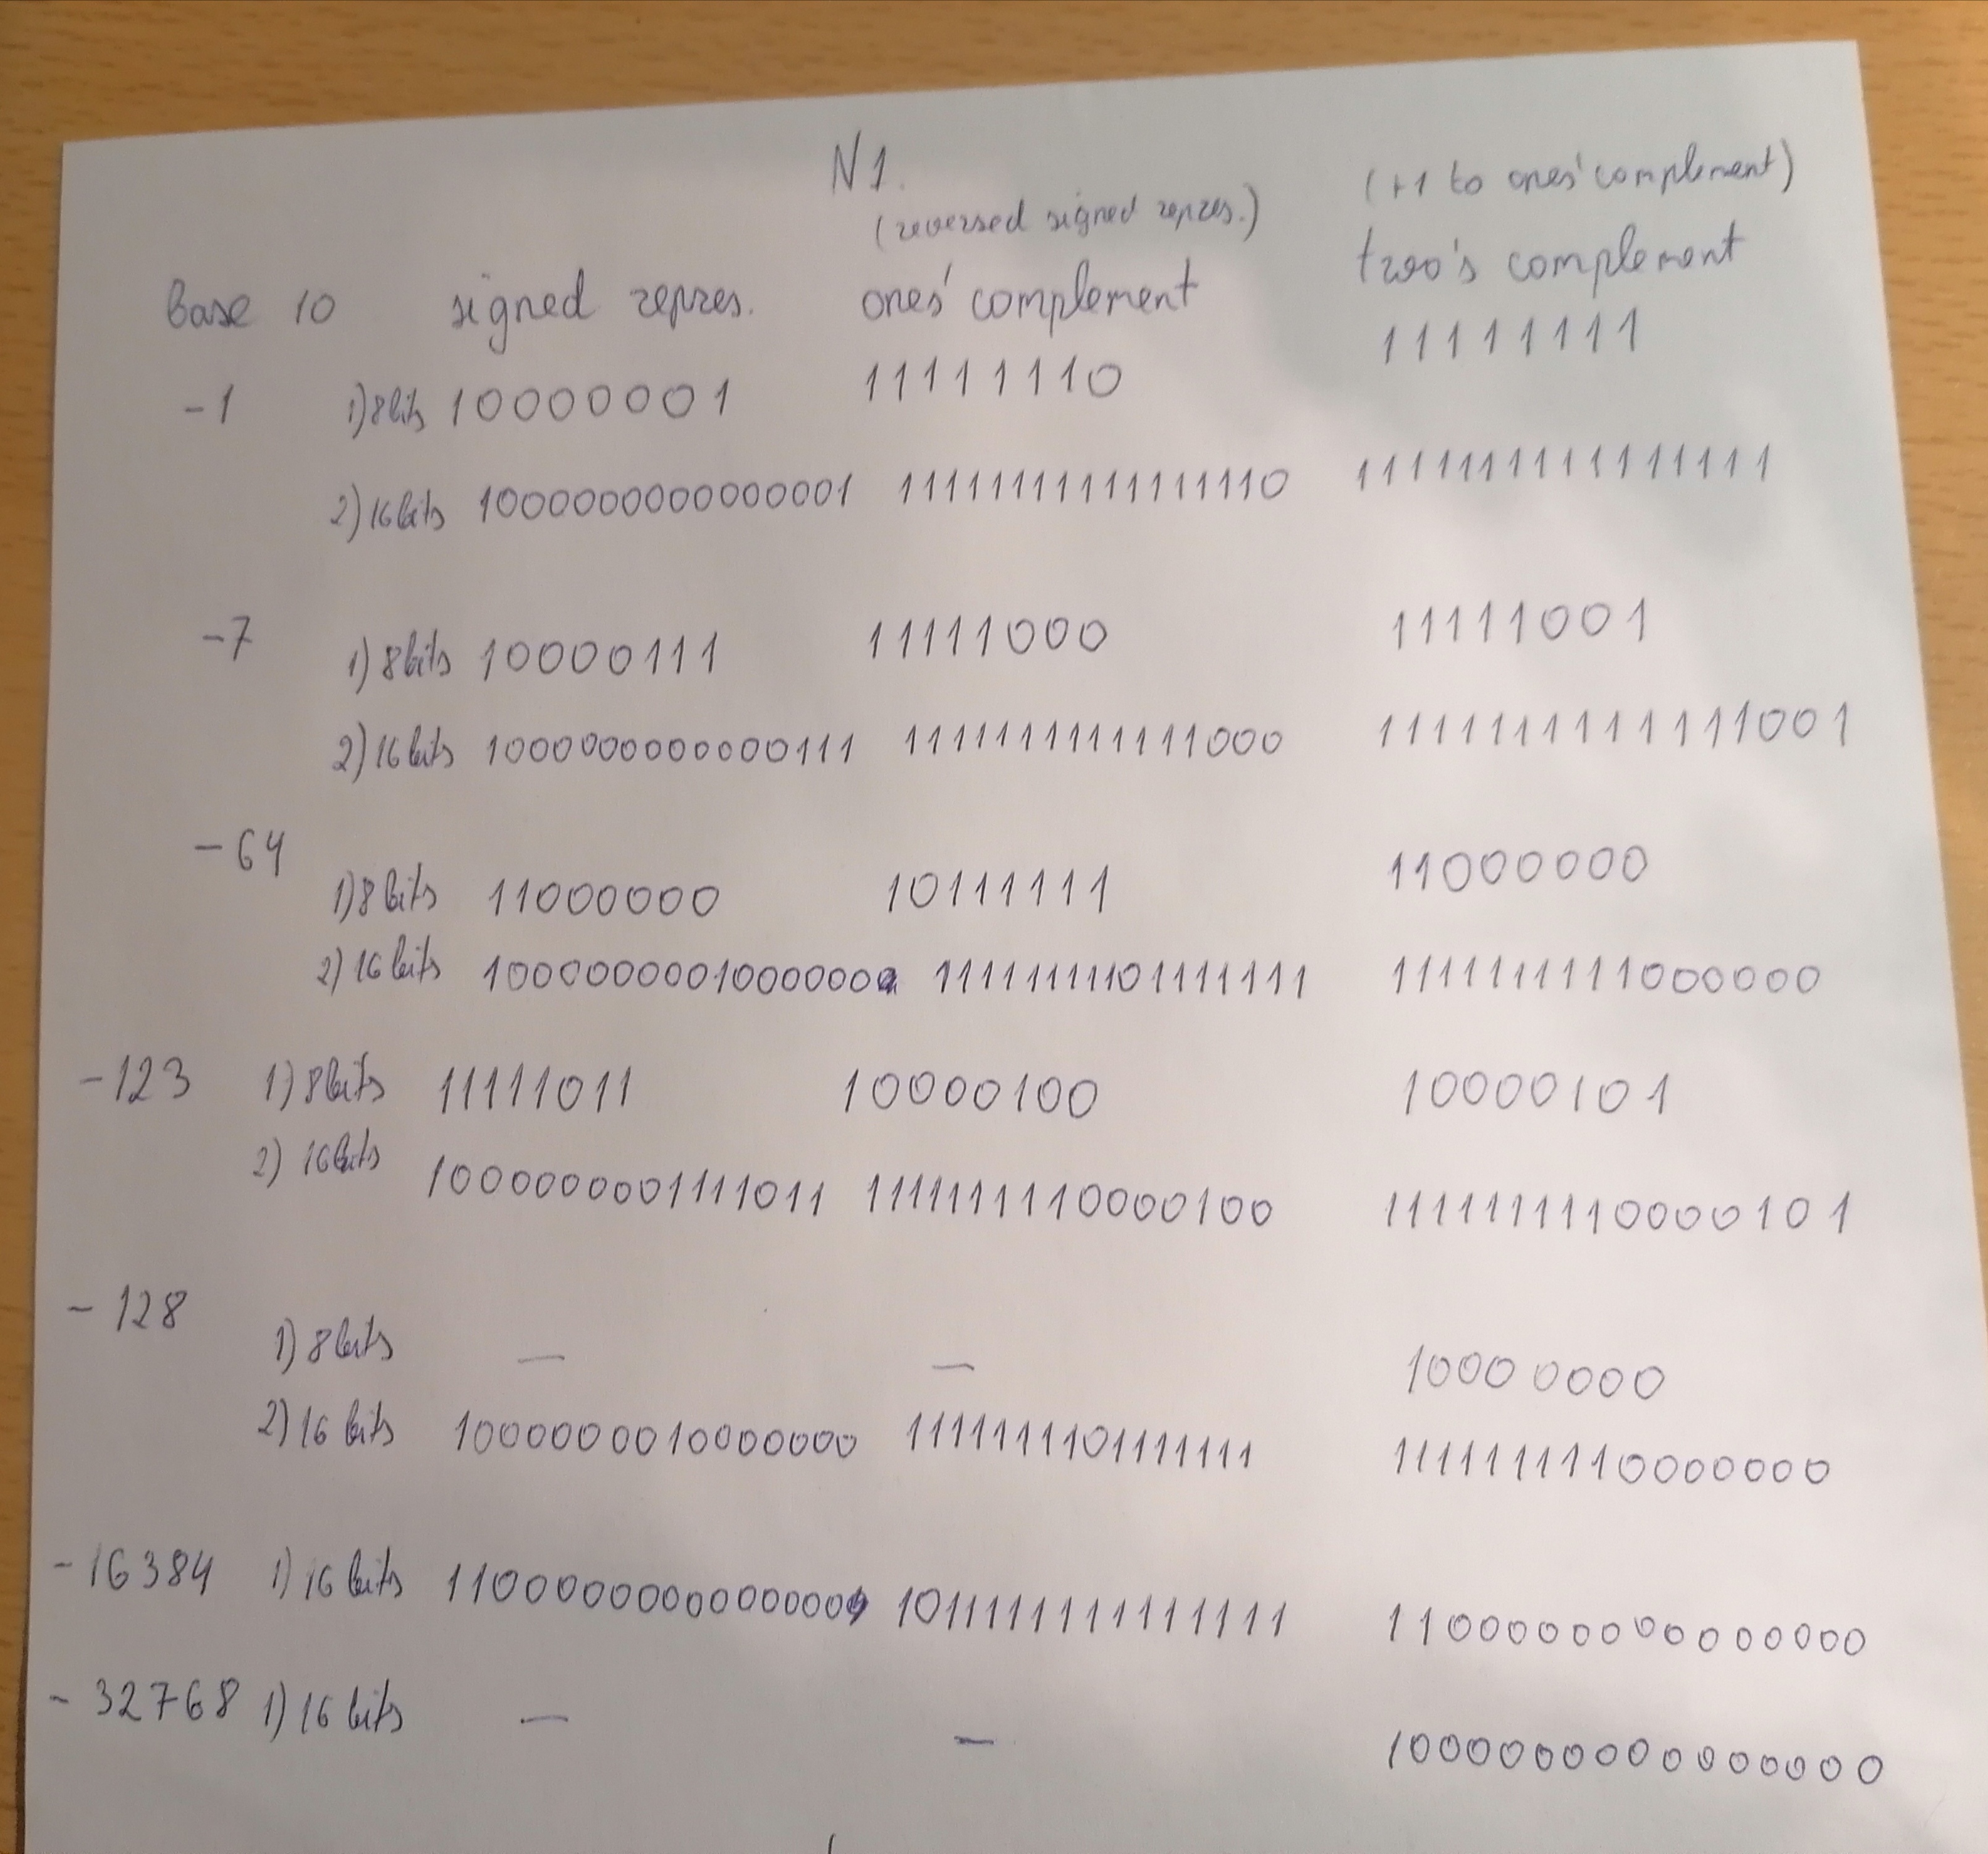 N1.
(reversed signed repres.) (+1 to ones' complement)
Base 10 signed repres. ones' complement two's complement
-1 1) 8 bits 10000001 11111110 11111111
2) 16 bits 1000000000000001 1111111111111110 1111111111111111
-7 1) 8 bits 10000111 11111000 11111001
2) 16 bits 1000000000000111 1111111111111000 1111111111111001
-64
1) 8 bits 11000000 10111111 11000000
2) 16 bits 1000000001000000 1111111110111111 1111111111000000
-123 1) 8 bits 11111011 10000100 10000101
2) 16 bits 1000000001111011 1111111110000100 1111111110000101
-128
1) 8 bits — — 1000 0000
2) 16 bits 1000000010000000 1111111101111111 1111111110000000
-16384 1) 16 bits 1100000000000000 1011111111111111 1100000000000000
-32768 1) 16 bits — — 1000000000000000